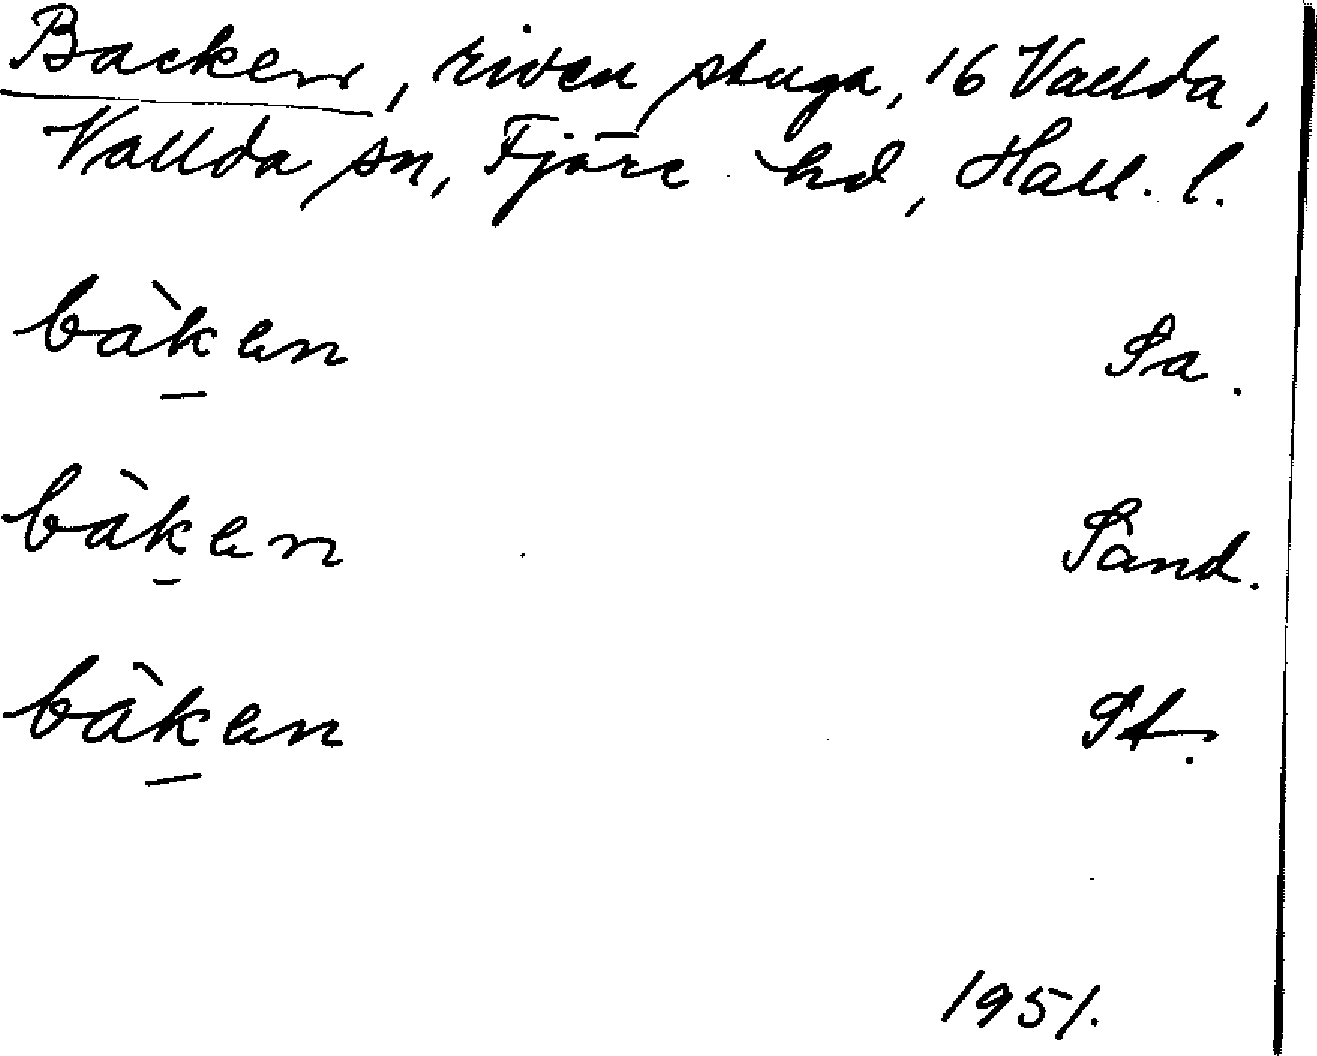 Backen, riven stuga, 16 Vallda,
Vallda sn, Fjäre hd, Hall. l.
bàk̲en Sa.
bàk̲en Sand.
bàk̲en St.
1951.